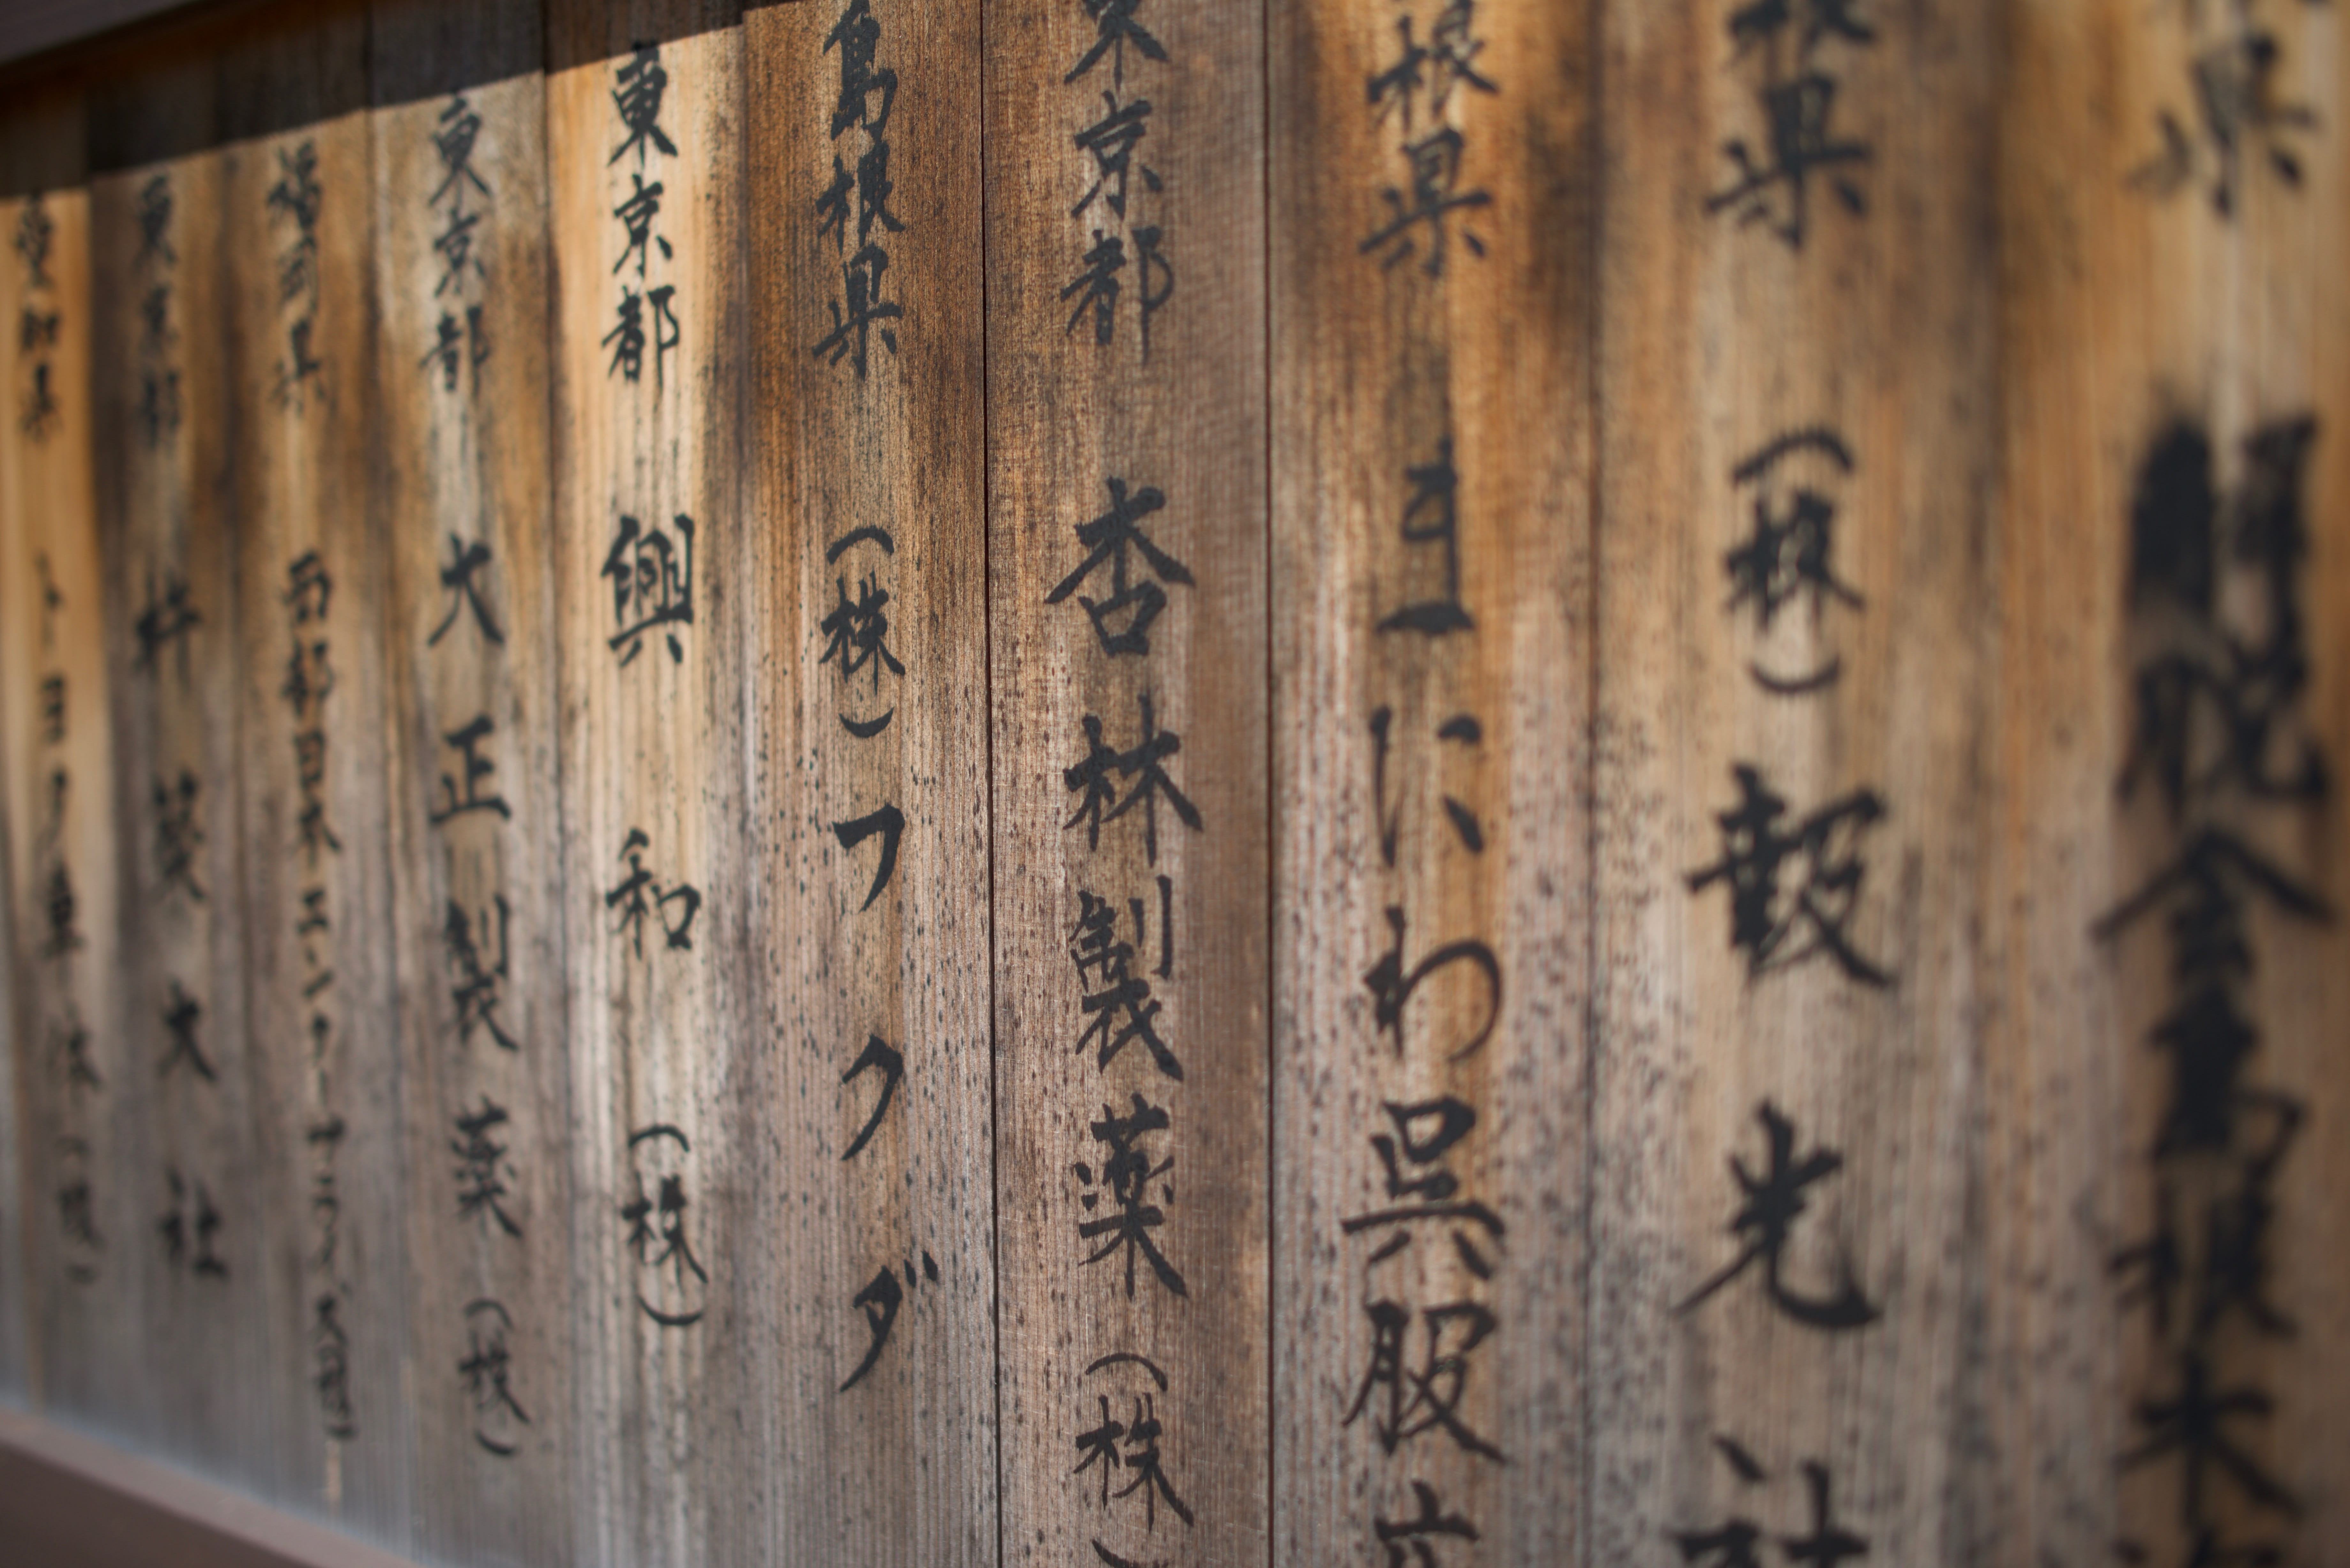 県
根県 (株)報光社
根県 まにわ呉服店
東京都 杏林製薬(株)
島根県 (株)フクダ
東京都 興和(株)
東京都 大正製薬(株)
福岡県 西部日本エンタープライズ
東京都 杵築大社
愛知県 トヨタ車体(株)